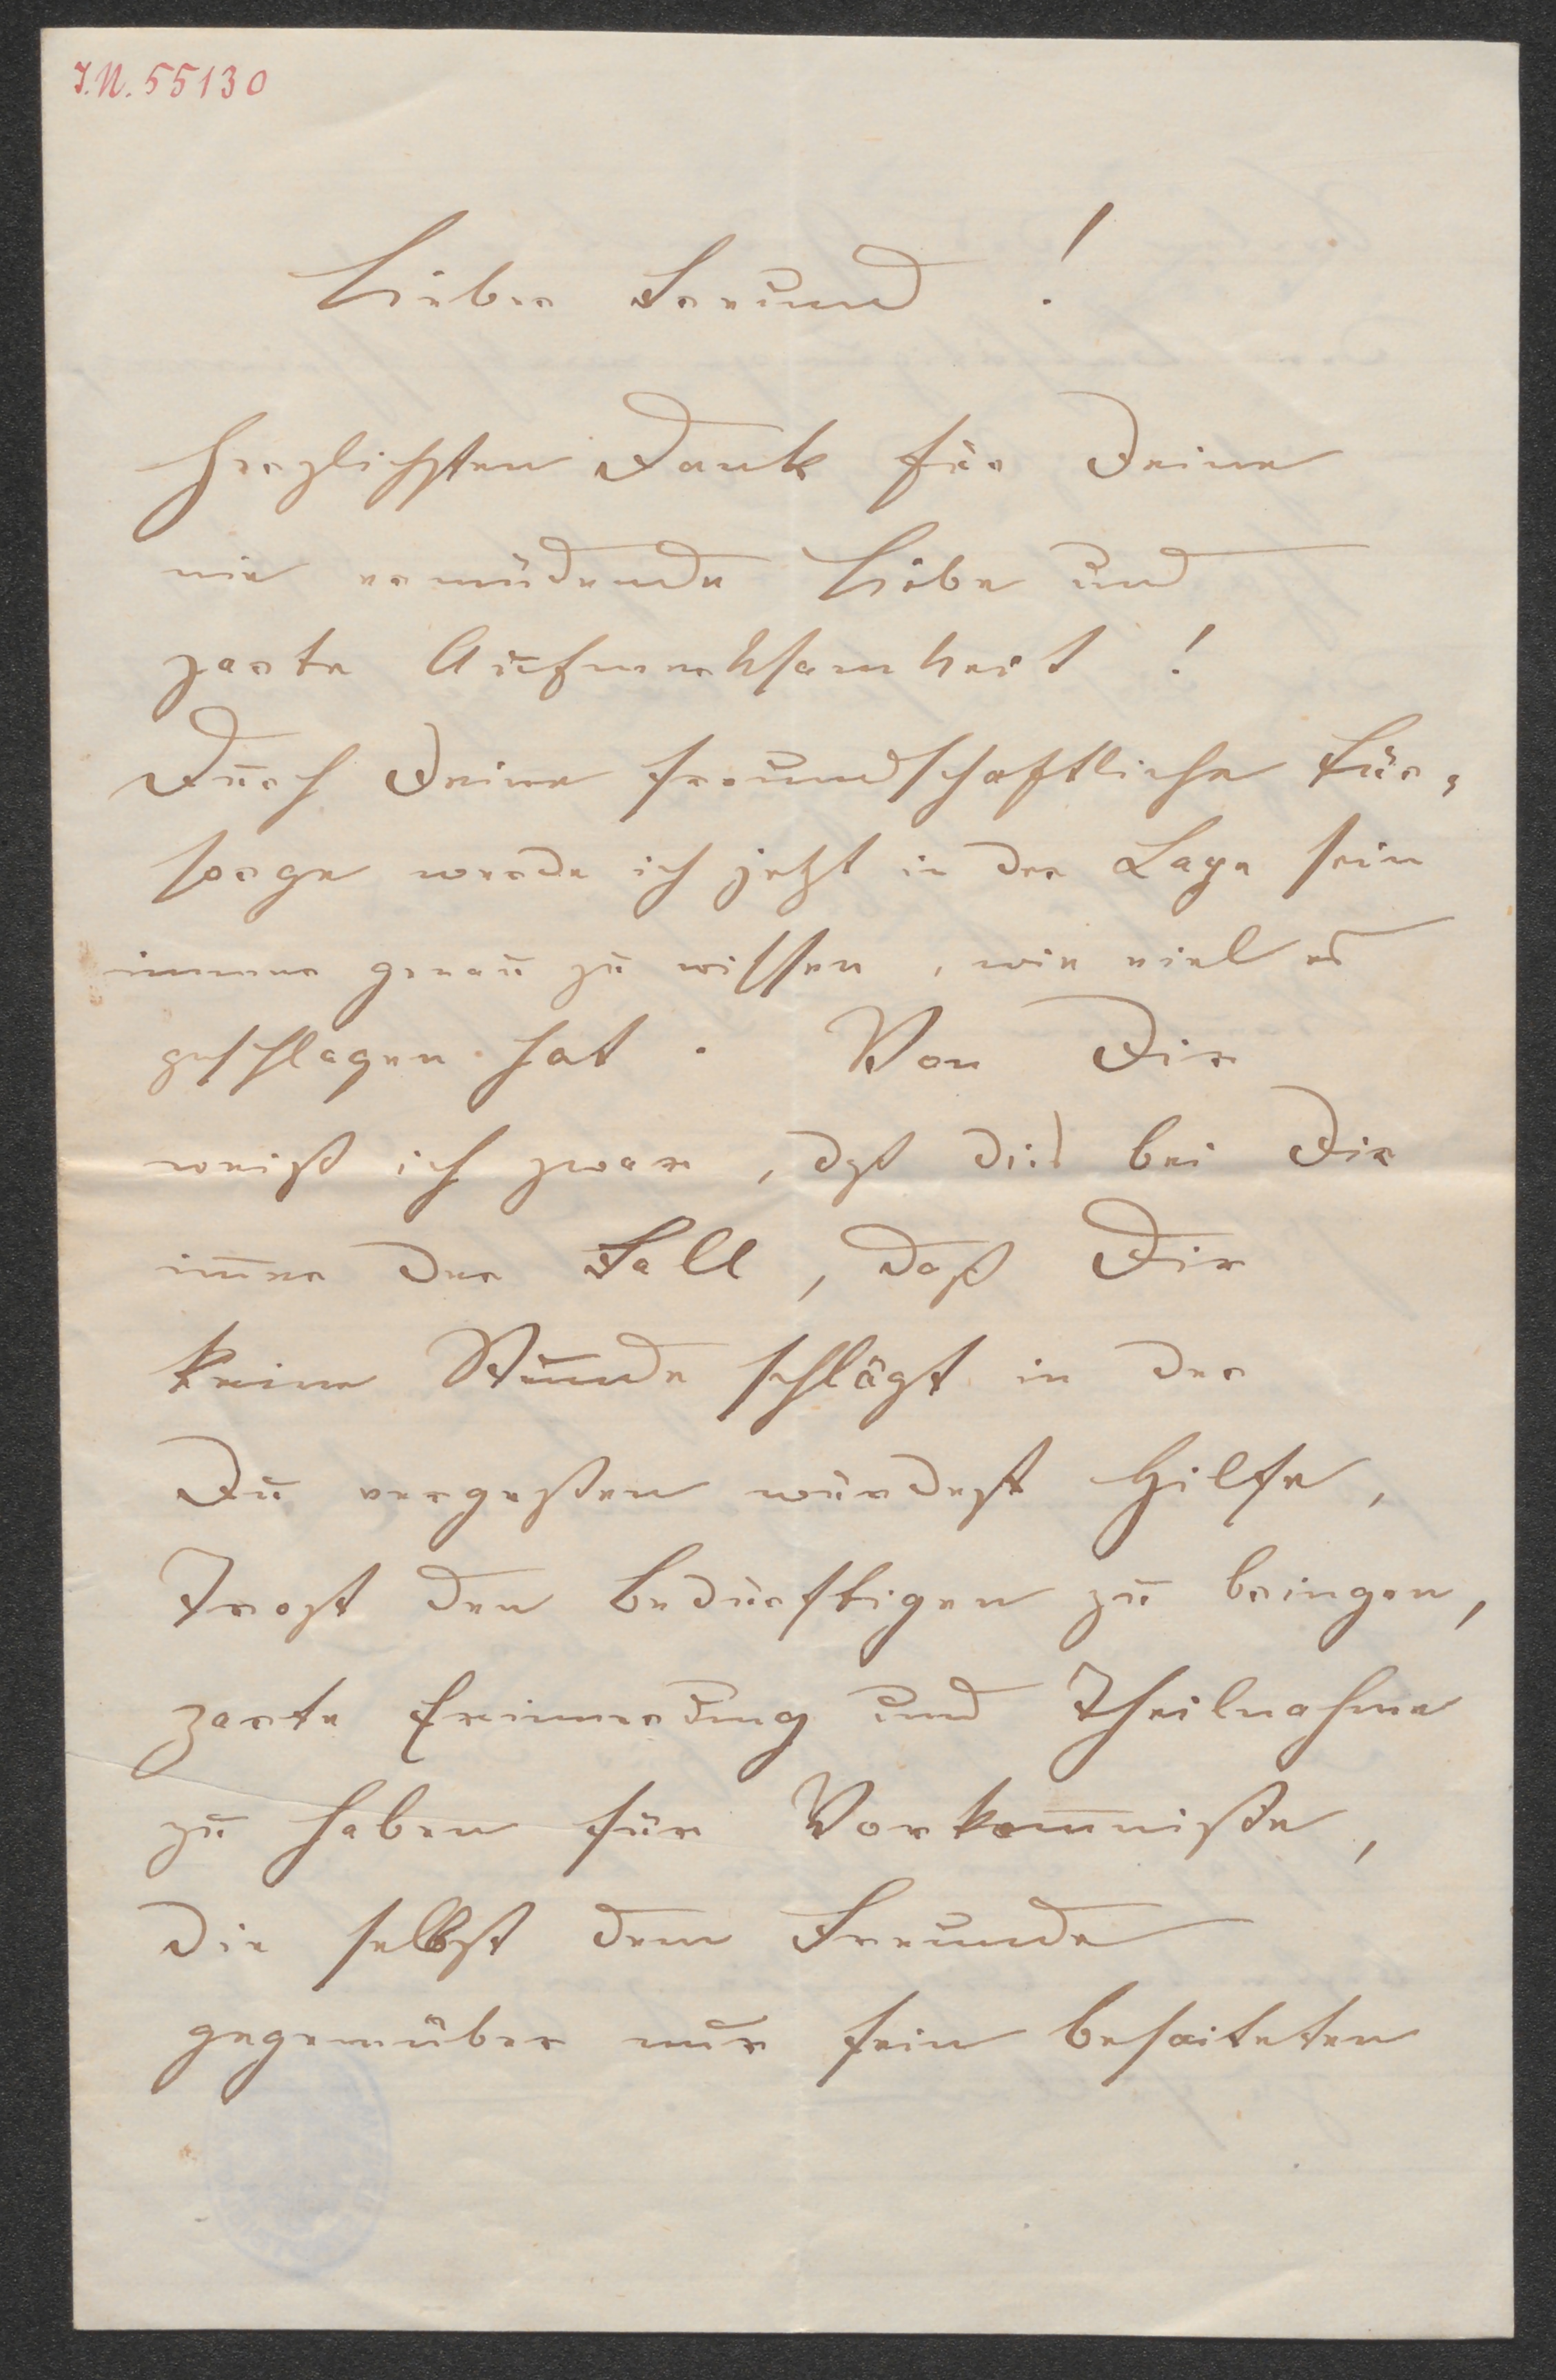 I.N. 55130
Lieber Freund !
Herzlichsten Dank für Deine
nie ermüdende Liebe und
zarte Aufmerksamkeit !
Durch Deine freundschaftliche Für-
sorge werde ich jetzt in der Lage sein
immer genau zu wissen, wie viel es
geschlagen hat. Von Dir
weiß ich zwar, dß dieß bei Dir
im̅er der Fall, daß Dir
keine Stunde schlägt in der
Du vergeßen würdest Hilfe,
Trost den Bedürftigen zu bringen,
zarte Erinnerung und Theilnahme
zu haben für Vorkom̅niße,
die selbst dem Freunde
gegenüber nur fein besaiteten